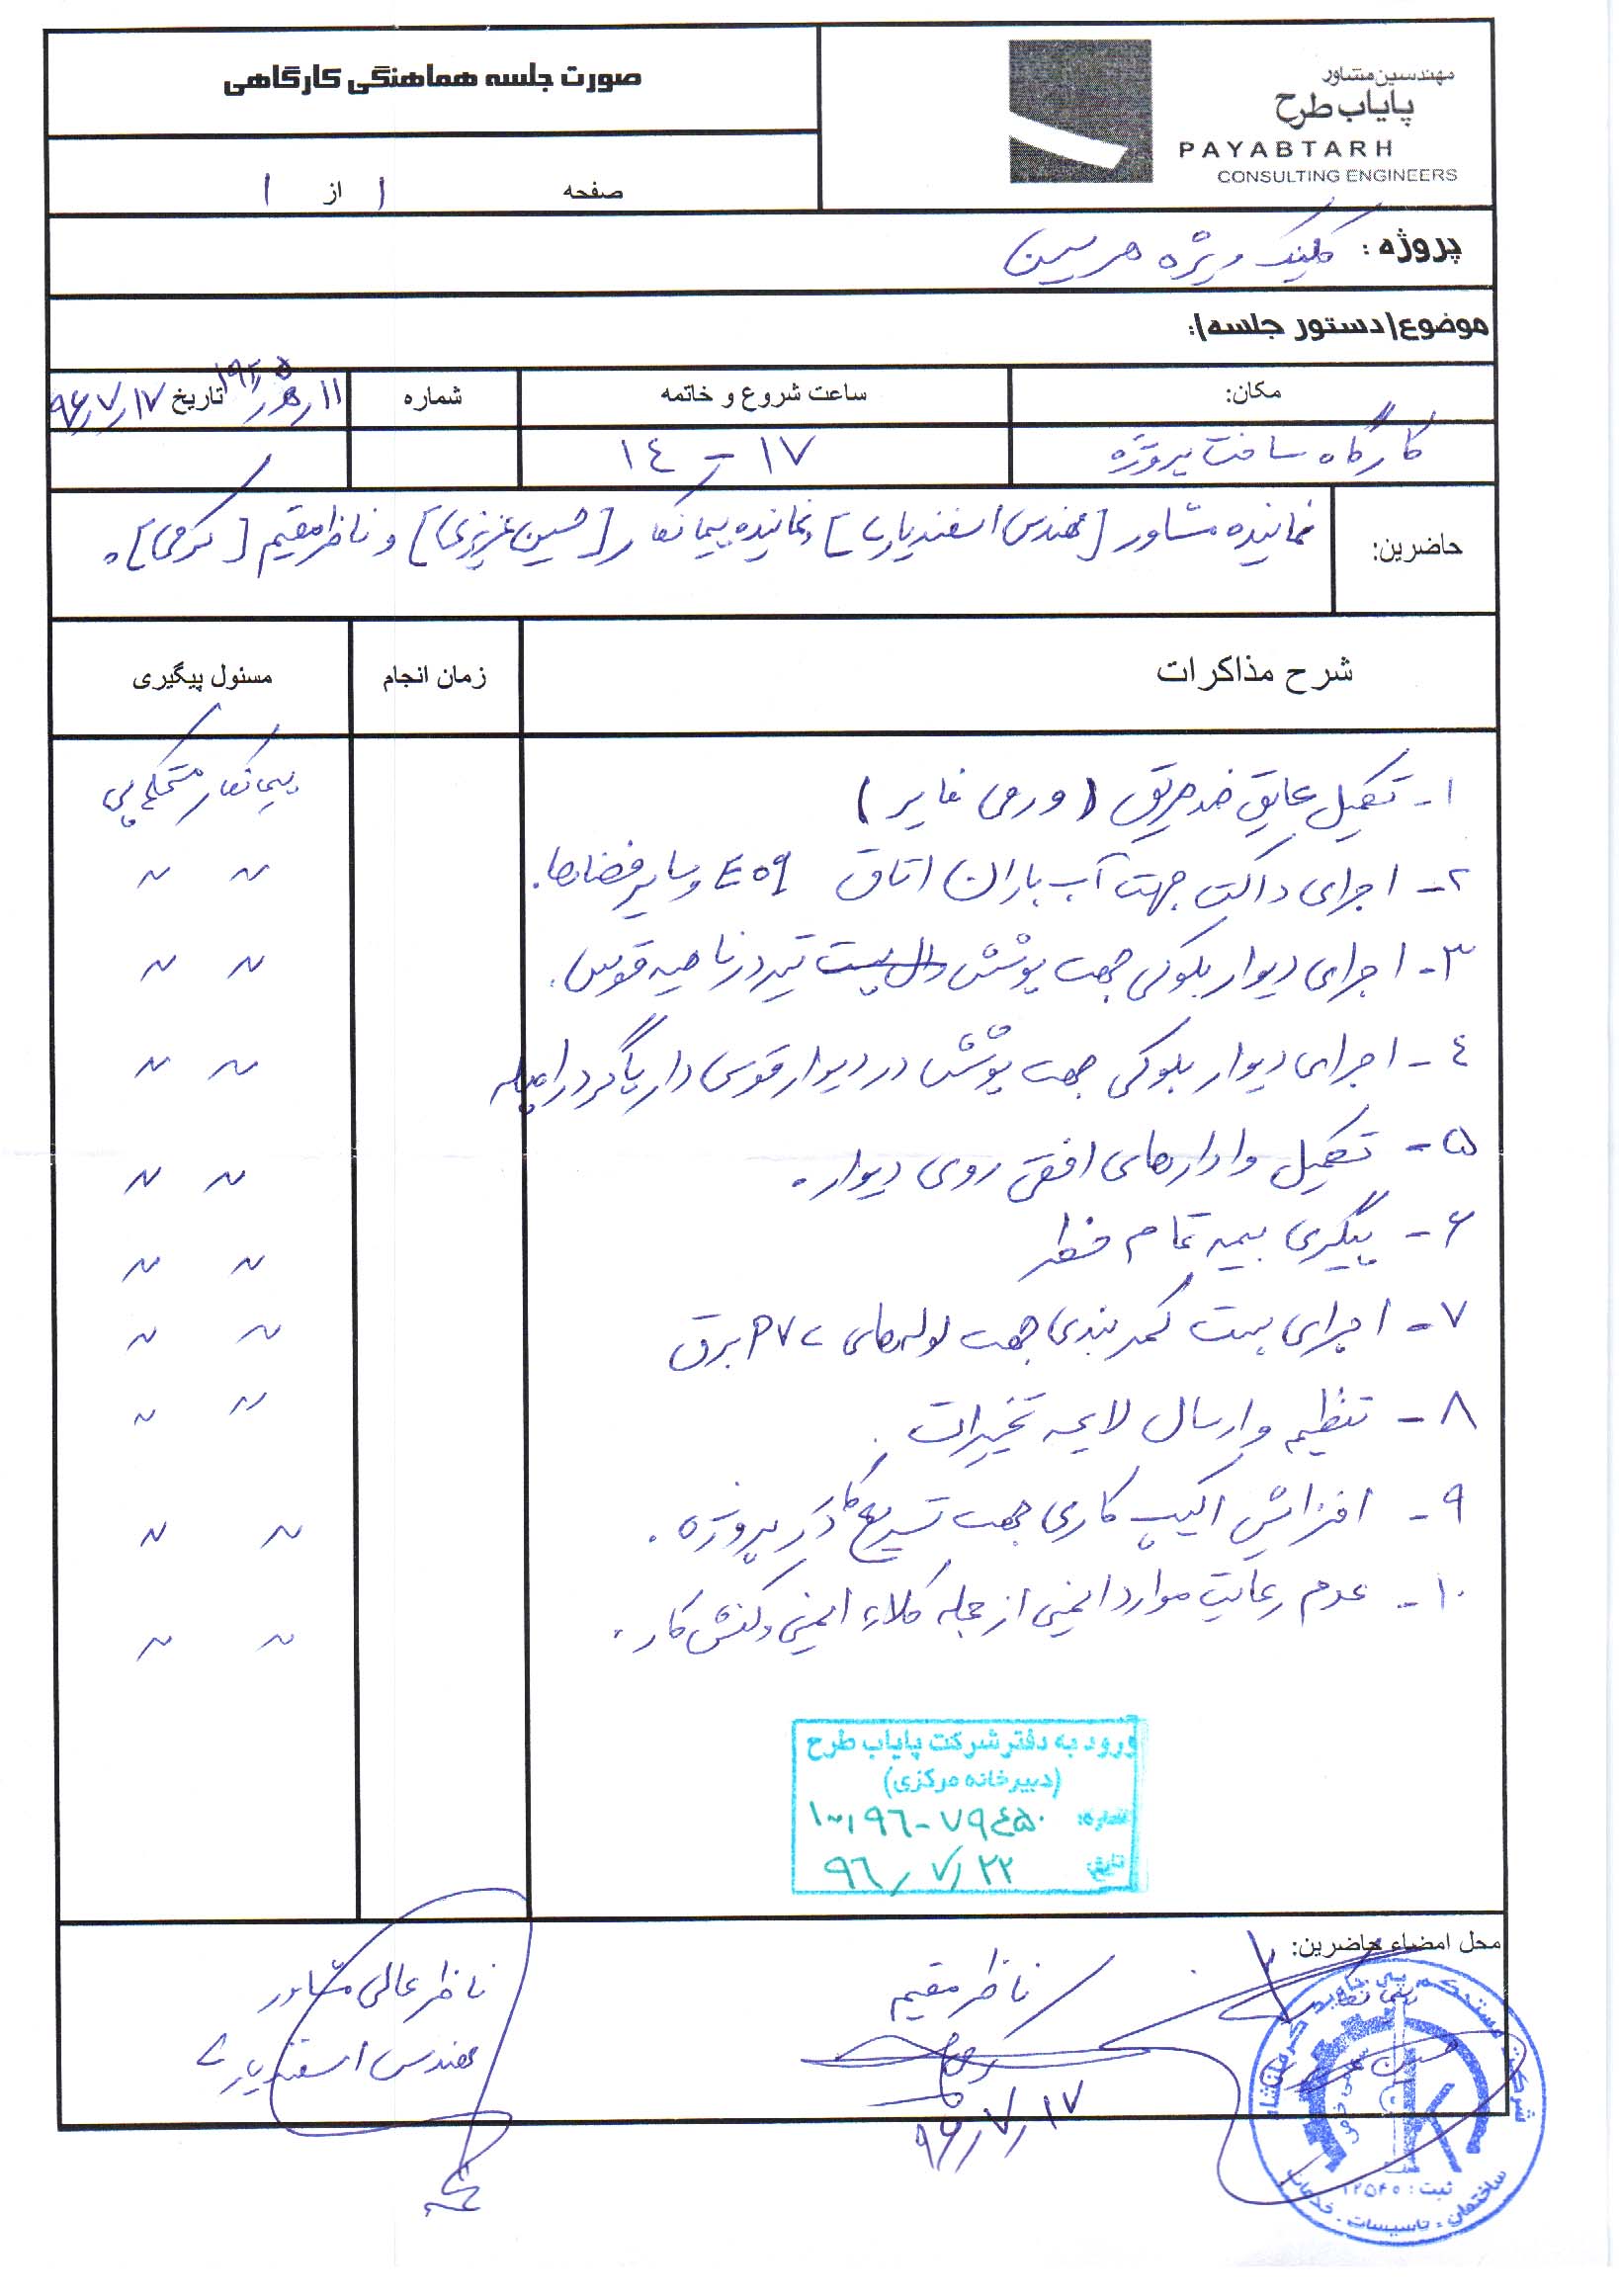 صورت جلسه هماهنگی کارگاهی
مهندسین مشاور
پایاب طرح
PAYABTARH
CONSULTING ENGINEERS
صفحه ۱ از ۱
پروژه : کلینیک ویژه هرسین
موضوع(دستور جلسه):
مکان: ساعت شروع و خاتمه شماره تاریخ ۹۶٫۷٫۱۷
کارگاه ساخت پروژه ۱۷ - ۱٤
حاضرین: نماینده مشاور [مهندس اسفندیاری] و نماینده پیمانکار [حسین عزیزی] و ناظر مقیم [کرمی].
شرح مذاکرات زمان انجام مسئول پیگیری
۱- تکمیل عایق ضد حریق (ورمی فایر) پیمانکار مستحکم پی
۲- اجرای داکت جهت آب باران اتاق E09 و سایر فضاها. 〃 〃
۳- اجرای دیوار بلوکی جهت پوشش تیر در ناحیه قوس. 〃 〃
٤- اجرای دیوار بلوکی جهت پوشش در دیوار قوسی دار پاگرد راه پله 〃 〃
۵- تکمیل وادارهای افقی روی دیوار. 〃 〃
۶- پیگیری بیمه تمام خطر 〃 〃
۷- اجرای بست کمربندی جهت لوله‌های PVC برق 〃 〃
۸- تنظیم و ارسال لایحه تاخیرات. 〃 〃
۹- افزایش اکیپ کاری جهت تسریع کار در پروژه. 〃 〃
۱۰- عدم رعایت موارد ایمنی از جمله کلاه ایمنی و کفش کار. 〃 〃
ورود به دفتر شرکت پایاب طرح
(دبیرخانه مرکزی)
شماره: ۷۹٤۵۰-۱۰۰٫۹۶
تاریخ ۹۶٫۷٫۲۲
محل امضاء حاضرین:
پیمانکار
حسین عزیزی
ناظر مقیم
کرمی
۹۶٫۷٫۱۷
ناظر عالی مشاور
مهندس اسفندیاری
شرکت مستحکم پی جاوید کرمانشاه
ثبت : ۱۲۵۴۰
ساختمان . تاسیسات . خدمات